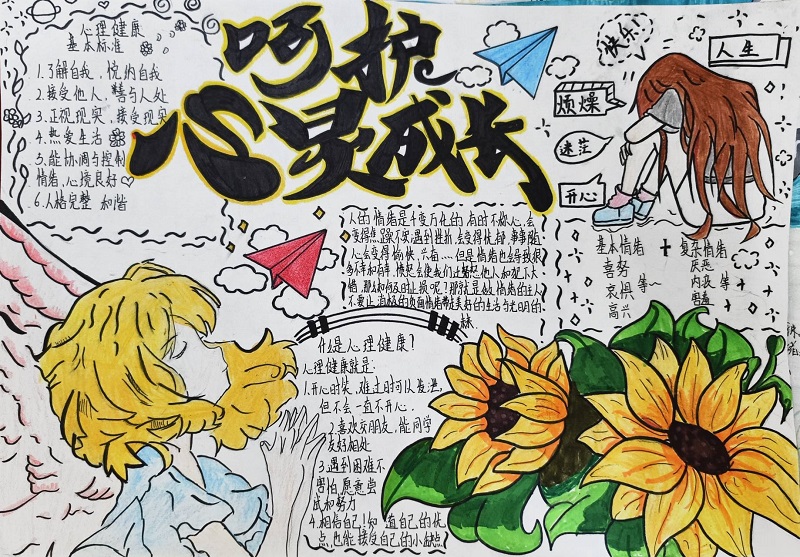 呵护
心灵成长
心理健康
基本标准
1.了解自我，悦纳自我
2.接受他人，善与人处
3.正视现实，接受现实
4.热爱生活
5.能协调与控制
情绪，心境良好
6.人格完整 和谐
快乐!
人生
烦燥
迷茫
开心
人的情绪是千变万化的有时不称心，会
变得焦躁不安；遇到挫折，会变得忧郁，事事随
心会变得愉快、兴奋...但是情绪也会导致很
不要让消极的负面情绪带走美好的生活与光明的
基本情绪
喜努
哀惧 等~
高兴
复杂情绪
厌恶
内疚 等
什么是心理健康?
心理健康就是:
1.开心时笑，难过时可以发泄，
但不会一直不开心.
2.喜欢交朋友，能同学
友好相处
3.遇到困难不
害怕愿意尝
试和努力
4.相信自己!知道自己的优
点，也能接受自己的小缺点